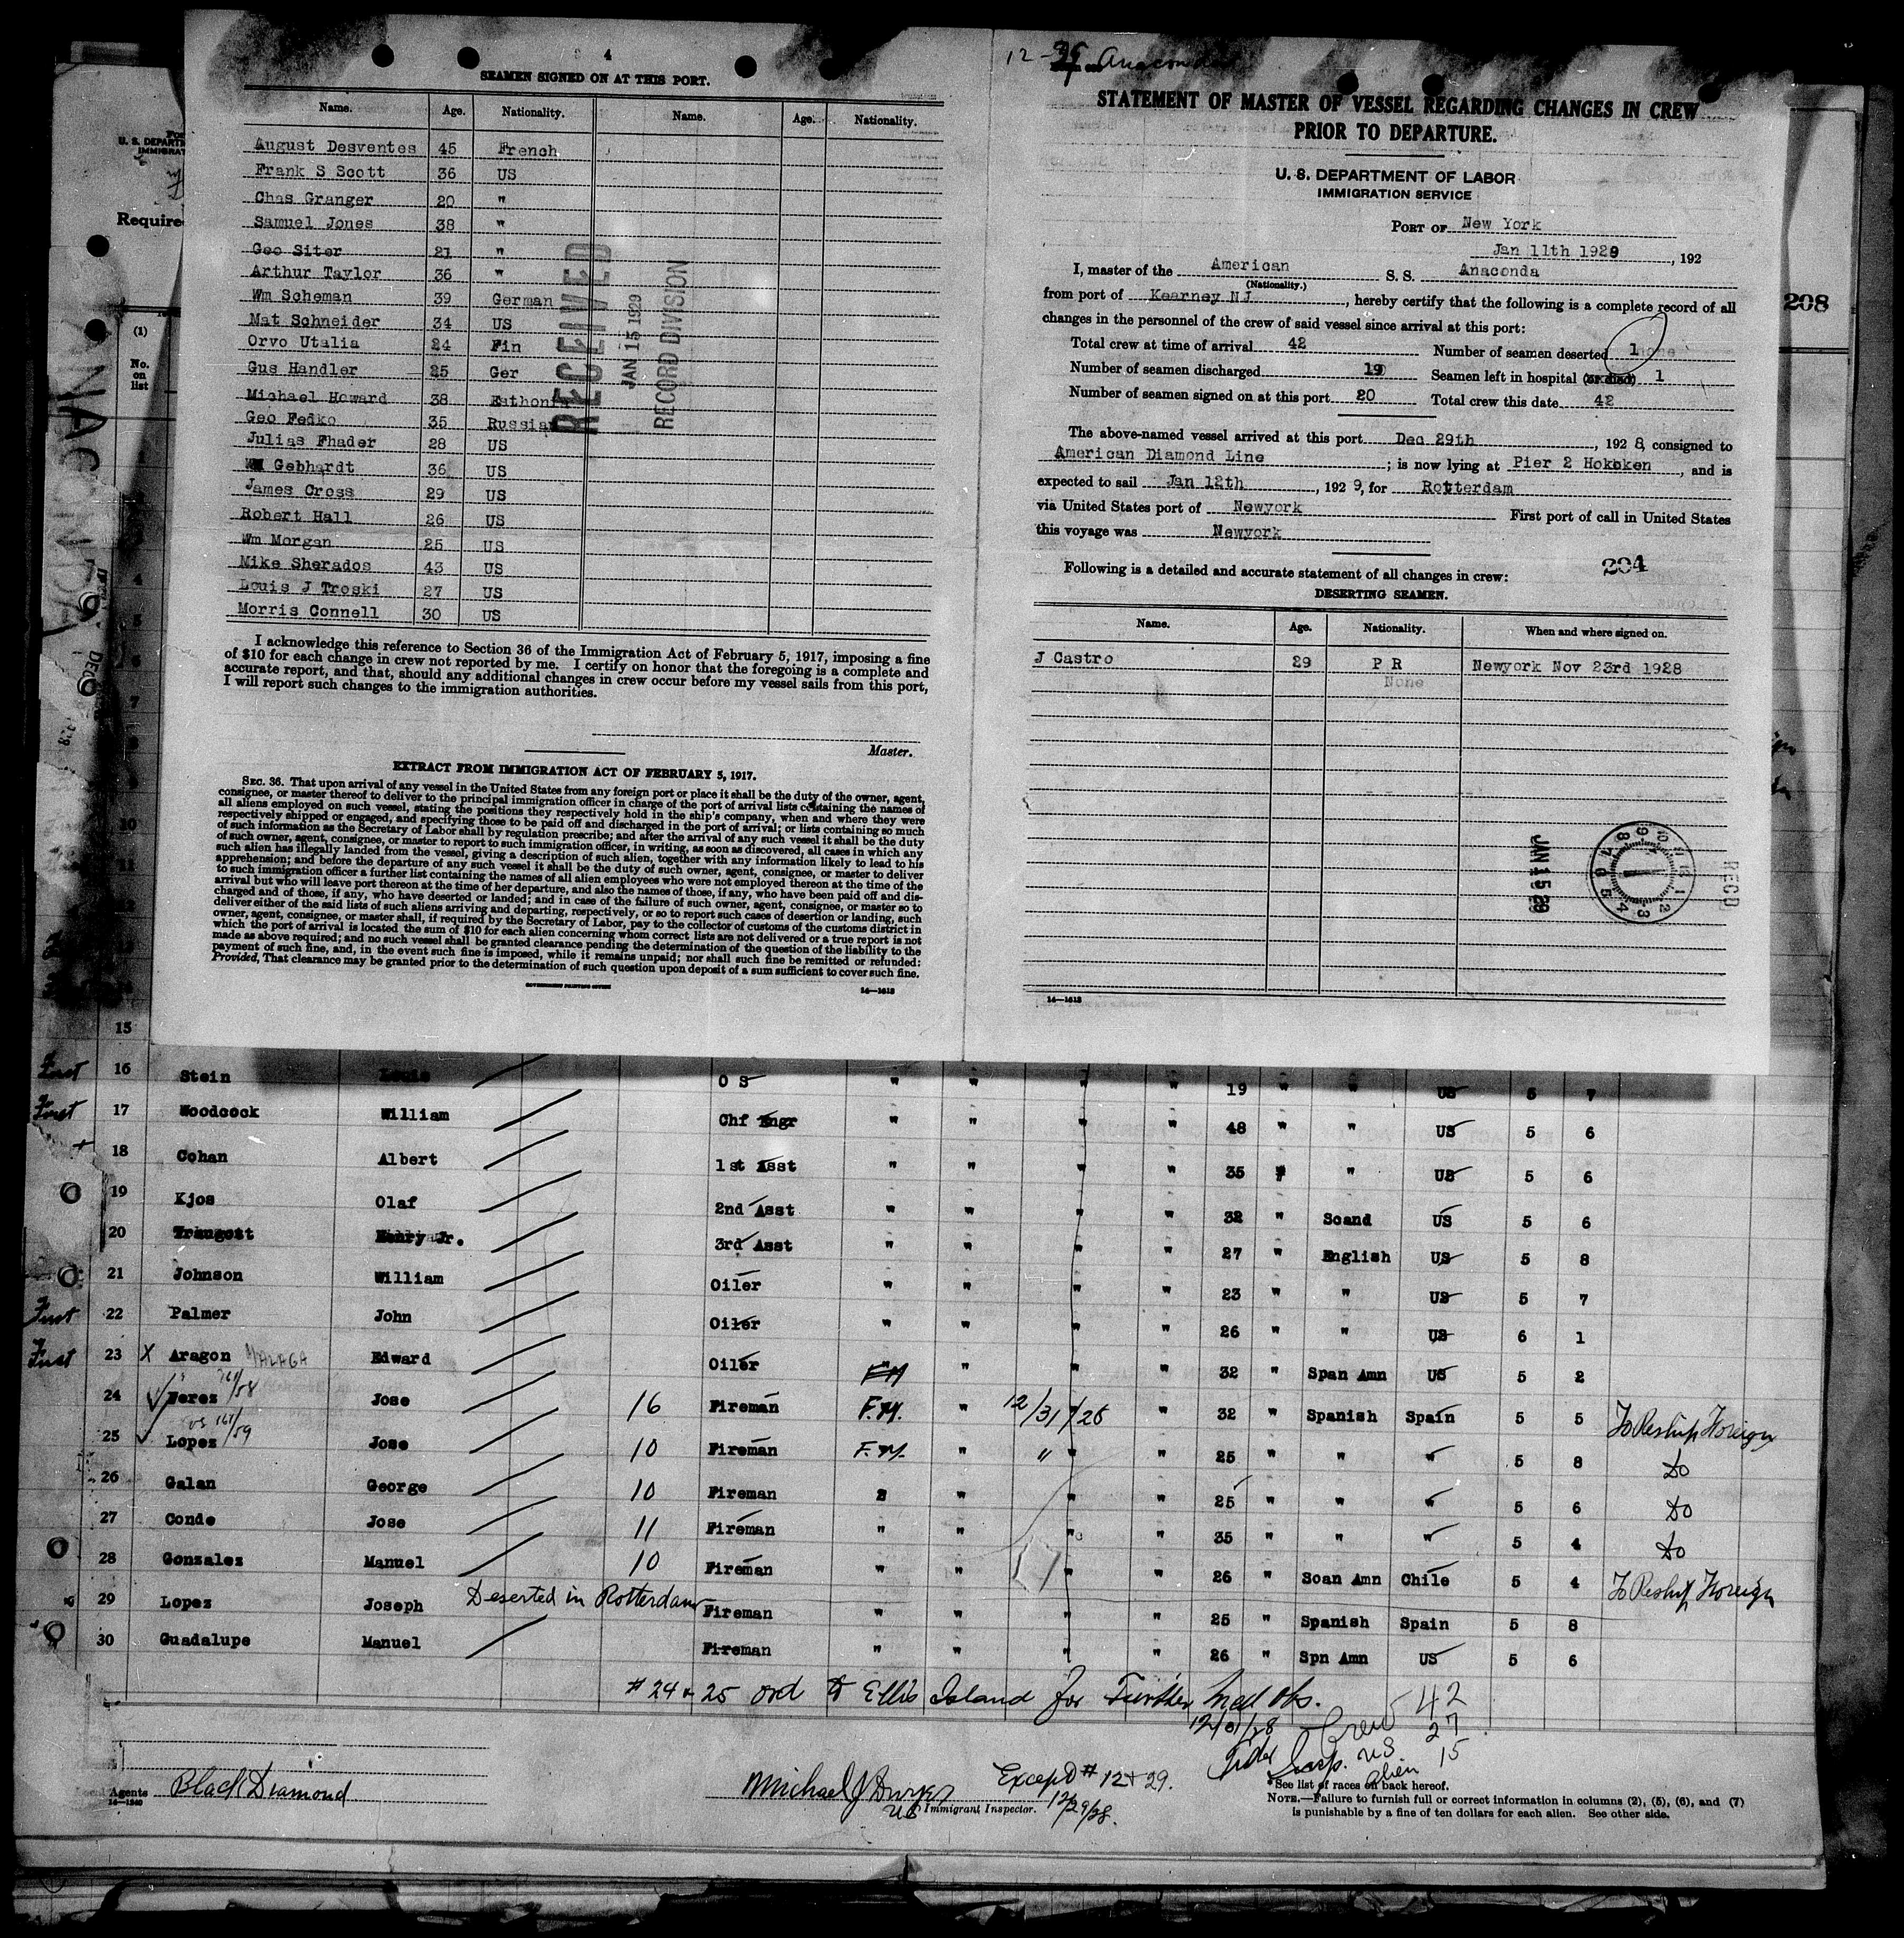 4
SEAMEN SIGNED ON AT THIS PORT.
Name. Age. Nationality. Name. Age. Nationality.
August Desventes 45 French
Frank S Scott 36 US
Chas Granger 20 "
Samuel Jones 38 "
Geo Siter 21 "
Arthur Taylor 36 "
Wm Scheman 39 German
Mat Schneider 34 US
Orvo Utalia 24 Fin
Gus Handler 25 Ger
Michael Howard 38 Esthonia
Geo Fedko 35 Russian
Julias Fhader 28 US
WM Gebhardt 36 US
James Cross 29 US
Robert Hall 26 US
Wm Morgan 25 US
Mike Sherados 43 US
Louis J Troski 27 US
Morris Connell 30 US
RECEIVED
JAN 15 1929
RECORD DIVISION
I acknowledge this reference to Section 36 of the Immigration Act of February 5, 1917, imposing a fine
of $10 for each change in crew not reported by me. I certify on honor that the foregoing is a complete and
accurate report, and that, should any additional changes in crew occur before my vessel sails from this port,
I will report such changes to the immigration authorities.
Master.
EXTRACT FROM IMMIGRATION ACT OF FEBRUARY 5, 1917.
SEC. 36. That upon arrival of any vessel in the United States from any foreign port or place it shall be the duty of the owner, agent,
consignee, or master thereof to deliver to the principal immigration officer in charge of the port of arrival lists containing the names of
all aliens employed on such vessel, stating the positions they respectively hold in the ship's company, when and where they were
respectively shipped or engaged, and specifying those to be paid off and discharged in the port of arrival; or lists containing so much
of such information as the Secretary of Labor shall by regulation prescribe; and after the arrival of any such vessel it shall be the duty
of such owner, agent, consignee, or master to report to such immigration officer, in writing, as soon as discovered, all cases in which any
such alien has illegally landed from the vessel, giving a description of such alien, together with any information likely to lead to his
apprehension; and before the departure of any such vessel it shall be the duty of such owner, agent, consignee, or master to deliver
to such immigration officer a further list containing the names of all alien employees who were not employed thereon at the time of the
arrival but who will leave port thereon at the time of her departure, and also the names of those, if any, who have been paid off and dis-
charged and of those, if any, who have deserted or landed; and in case of the failure of such owner, agent, consignee, or master so to
deliver either of the said lists of such aliens arriving and departing, respectively, or so to report such cases of desertion or landing, such
owner, agent, consignee, or master shall, if required by the Secretary of Labor, pay to the collector of customs of the customs district in
which the port of arrival is located the sum of $10 for each alien concerning whom correct lists are not delivered or a true report is not
made as above required; and no such vessel shall be granted clearance pending the determination of the question of the liability to the
payment of such fine, and, in the event such fine is imposed, while it remains unpaid; nor shall such fine be remitted or refunded:
Provided, That clearance may be granted prior to the determination of such question upon deposit of a sum sufficient to cover such fine.
GOVERNMENT PRINTING OFFICE 14—1613
12- Anaconda
STATEMENT OF MASTER OF VESSEL REGARDING CHANGES IN CREW
PRIOR TO DEPARTURE.
U. S. DEPARTMENT OF LABOR
IMMIGRATION SERVICE
PORT OF New York
Jan 11th 1929, 192
I, master of the American S. S. Anaconda
(Nationality.)
from port of Kearney NJ, hereby certify that the following is a complete record of all
changes in the personnel of the crew of said vessel since arrival at this port:
Total crew at time of arrival 42 Number of seamen deserted 1 none
Number of seamen discharged 19 Seamen left in hospital (or died) 1
Number of seamen signed on at this port 20 Total crew this date 42
The above-named vessel arrived at this port Dec 29th, 192 8, consigned to
American Diamond Line; is now lying at Pier 2 Hoboken, and is
expected to sail Jan 12th, 192 9, for Rotterdam
via United States port of Newyork First port of call in United States
this voyage was Newyork
204
Following is a detailed and accurate statement of all changes in crew:
DESERTING SEAMEN.
Name. Age. Nationality. When and where signed on.
J Castro 29 P R Newyork Nov 23rd 1928
None
JAN 15 29
REC'D
14—1613
208
U. S. DEPART
IMMIGRAT
Require
(1)
No.
on
list
ANACONDA
15
First 16 Stein Louis O S " " " " 19 " " US 5 7
First 17 Woodcock William Chf Engr " " " " 48 " " US 5 6
18 Cohan Albert 1st Asst " " " " 35 " " US 5 6
19 Kjos Olaf 2nd Asst " " " " 32 " Scand US 5 6
20 Traugott Henry Jr. 3rd Asst " " " " 27 " English US 5 8
21 Johnson William Oiler " " " " 23 " " US 5 7
First 22 Palmer John Oiler " " " " 26 " " US 6 1
First 23 X Aragon MALAGA Edward Oiler " " " 32 " Span Amn US 5 2
24 Perez 761/58 Jose 16 Fireman F.M. " 12/31/28 " 32 " Spanish Spain 5 5 To Reship Foreign
25 Lopez 761/59 Jose 10 Fireman F.M. " " " 25 " " " 5 8 Do
26 Galan George 10 Fireman " " " 25 " " " 5 6 Do
27 Conde Jose 11 Fireman " " " " 35 " " " 5 4 Do
28 Gonzalez Manuel 10 Fireman " " " " 26 " Soan Amn Chile 5 4 To Reship Foreign
29 Lopez Joseph Deserted in Rotterdam Fireman " " " " 25 " Spanish Spain 5 8
30 Guadalupe Manuel Fireman " " " " 26 " Spn Amn US 5 6
#24 & 25 ord to Ellis Island for Further Med obs.
12/31/28
Crew 42
US 27
alien 15
Agents Black Diamond
14—1240
Michael J Dwyer
US Immigrant Inspector.
Except # 12 & 29.
12/29/28.
*See list of races on back hereof.
NOTE.—Failure to furnish full or correct information in columns (2), (5), (6), and (7)
is punishable by a fine of ten dollars for each alien. See other side.